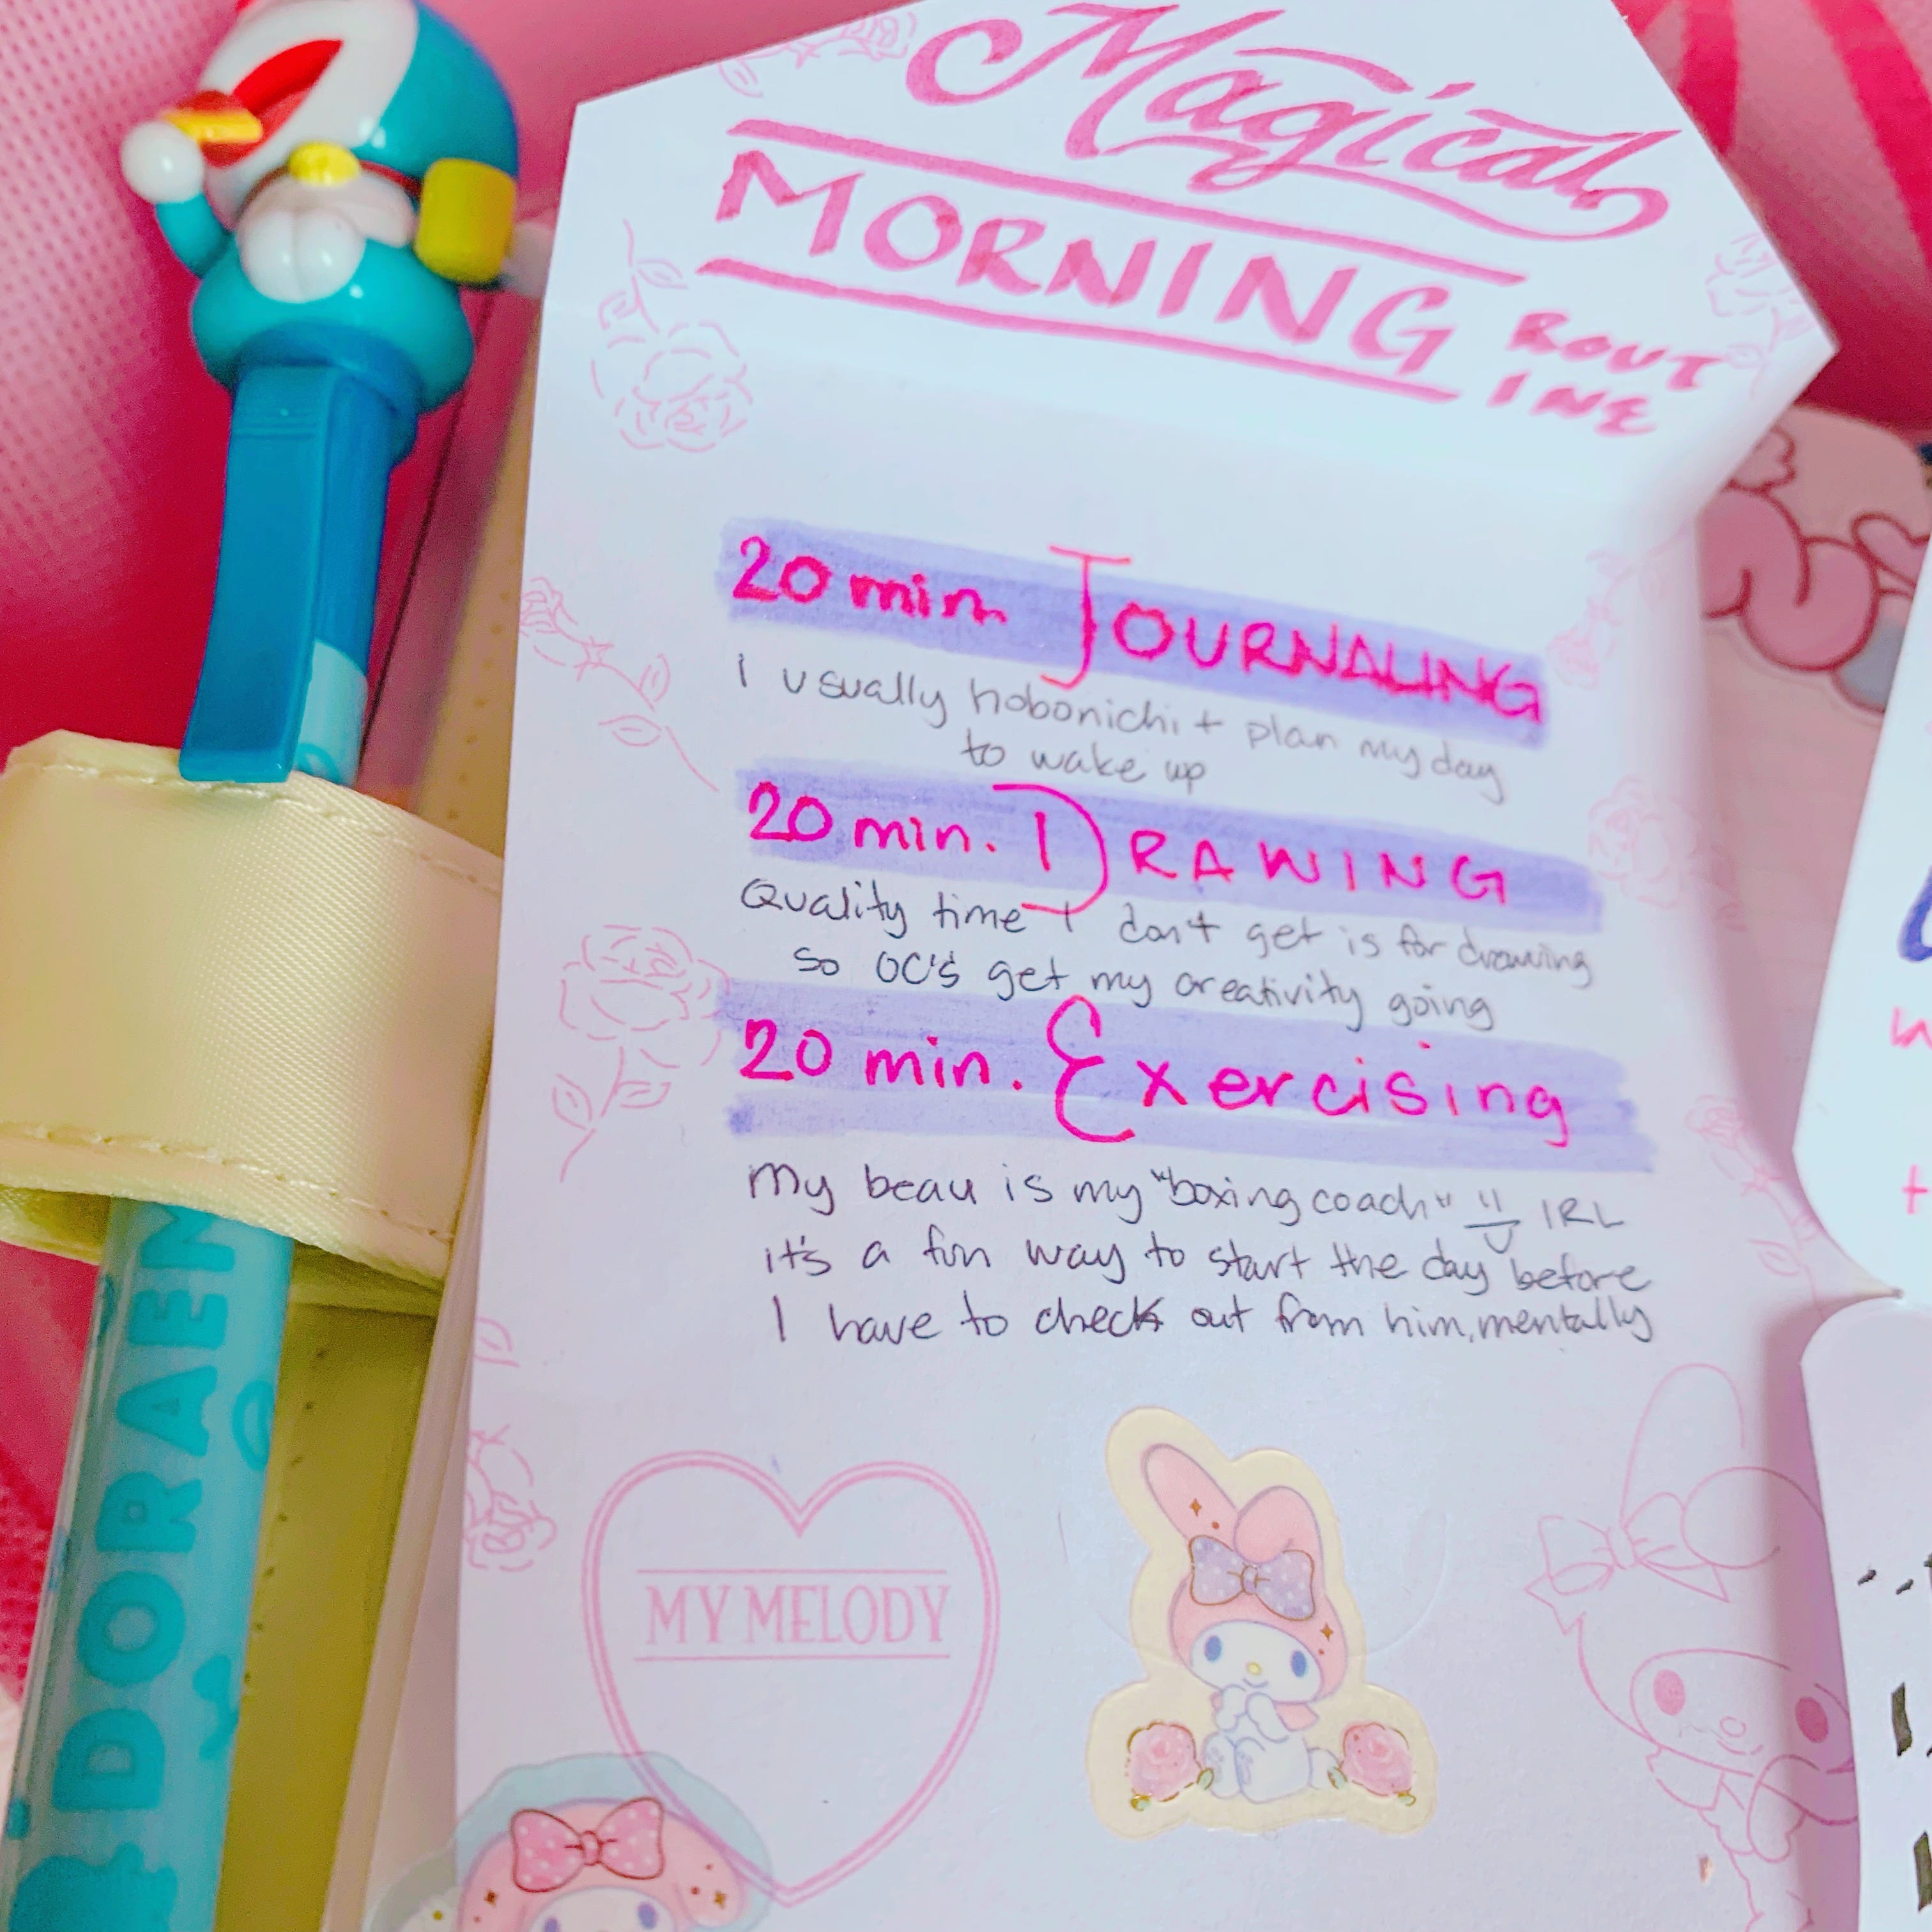 Magical
MORNING ROUT
INE
20 min. JOURNALING
I usually hobonichi + plan my day
to wake up
20 min. DRAWING
Quality time I don't get is for drawing
so OC's get my creativity going
20 min. Exercising
My beau is my "boxing coach" IRL
it's a fun way to start the day before
I have to check out from him, mentally
MY MELODY
DORAEM